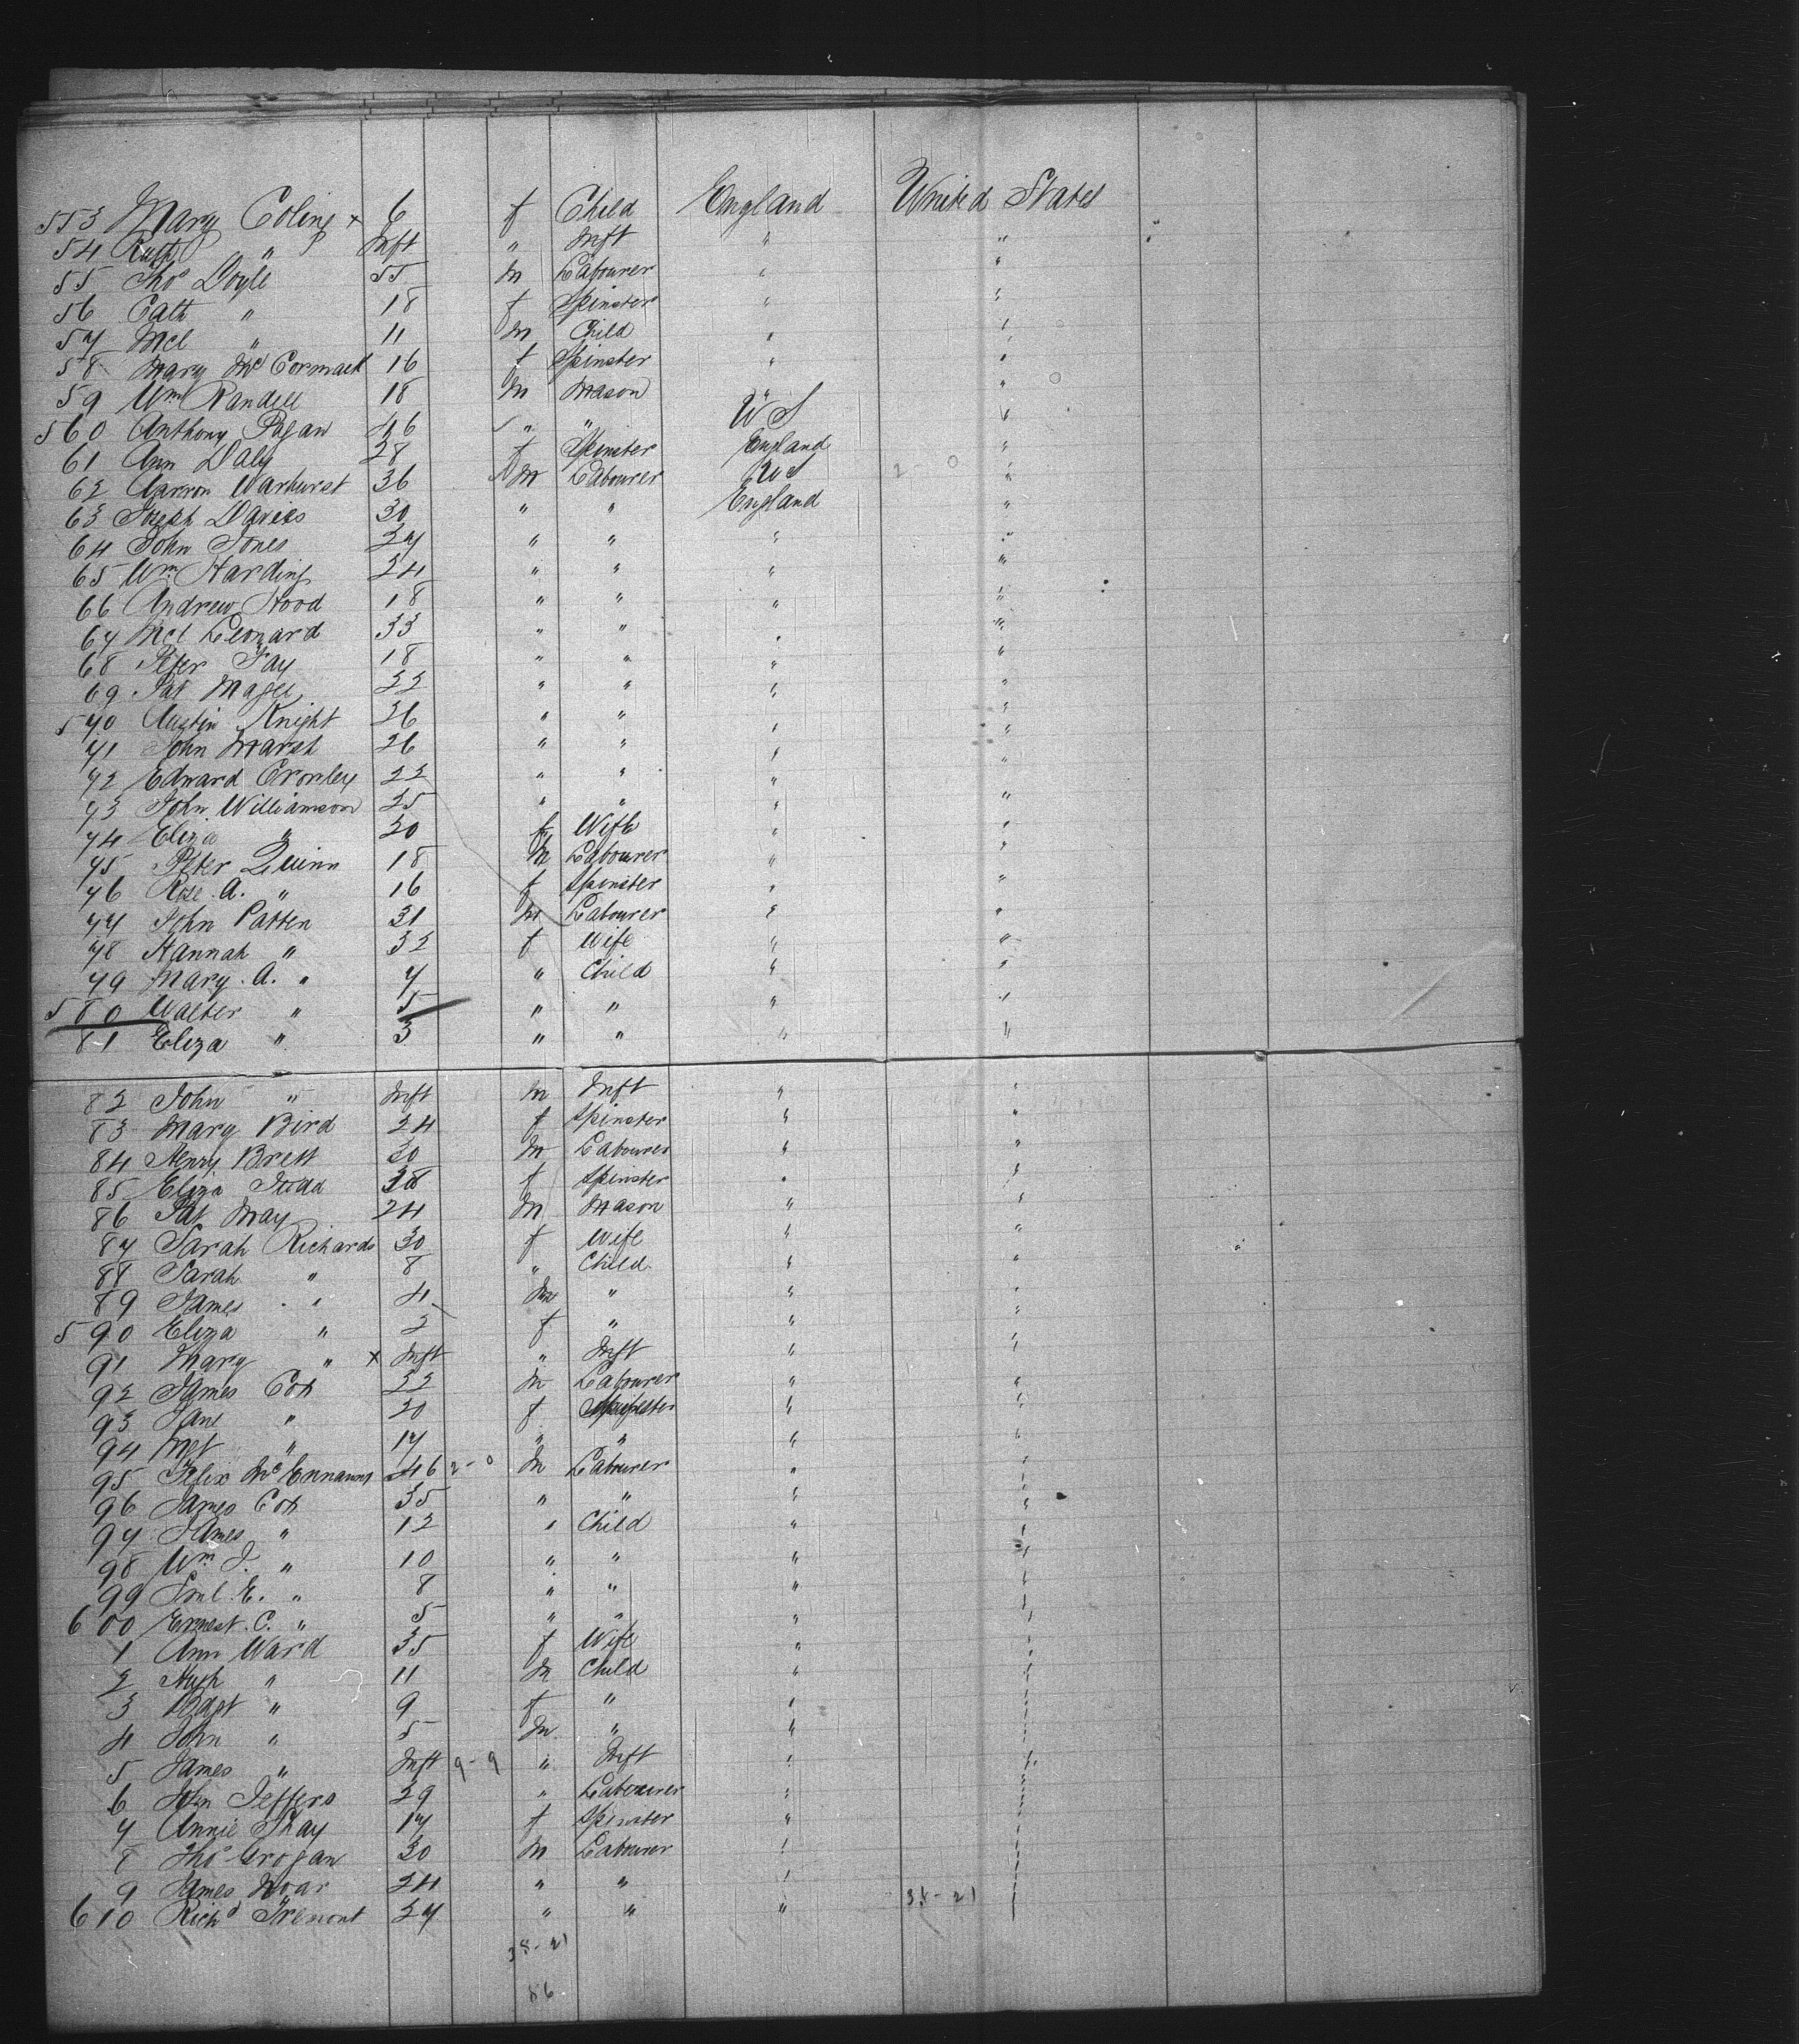 553 Mary Coling x 6 f Child England United States
54 Ruth " Inft " Inft " "
55 Thos Doyle 55 M Labourer " "
56 Cath " 18 f Spinster " "
57 Mcl " 11 M Child " "
58 Mary McCormack 16 f Spinster " "
59 Wm Randell 18 M Mason " "
560 Anthony Pagan 46 " " U S "
61 Ann Daly 28 f Spinster England "
62 Aarron Warhurst 36 M Labourer U S 2 - 0 "
63 Joseph Davies 30 " " England "
64 John Jones 27 " " " "
65 Wm Harding 24 " " " "
66 Andrew Hood 18 " " " "
67 Mcl Leonard 33 " " " "
68 Peter Fay 18 " " " "
69 Pat Magee 22 " " " "
570 Austin Knight 26 " " " "
71 John Marsh 26 " " " "
72 Edward Cronley 22 " " " "
73 John Williamson 25 " " " "
74 Eliza " 20 f Wife " "
75 Peter Quinn 18 M Labourer " "
76 Rose A. " 16 f Spinster " "
77 John Patten 31 M Labourer " "
78 Hannah " 32 f Wife " "
79 Mary A. " 7 " Child " "
580 Walter " 5 " " " "
81 Eliza " 3 " " " "
82 John " Inft M Inft " "
83 Mary Bird 24 f Spinster " "
84 Henry Brett 30 M Labourer " "
85 Eliza Todd 38 f Spinster " "
86 Pat May 24 M Mason " "
87 Sarah Richards 30 f Wife " "
88 Sarah " 8 " Child " "
89 James " 4 M " " "
590 Eliza " 2 f " " "
91 Mary " x Inft " Inft " "
92 James Cox 22 M Labourer " "
93 Jane " 20 f Spinster " "
94 Mgt " 17 " " " "
95 Felix 46 2 - 0 M Labourer " "
96 James Cox 35 " " " "
97 James " 12 " Child " "
98 Wm J. " 10 " " " "
99 Saml E. " 8 " " " "
600 Ernest C. " 5 " " " "
1 Ann Ward 35 f Wife " "
2 Hugh " 11 M Child " "
3 Bdgt " 9 f " " "
4 John " 5 M " " "
5 James " Inft 9 - 9 " Inft " "
6 John Jeffers 29 " Labourer " "
7 Annie Shay 17 f Spinster " "
8 Thos Grogan 30 M Labourer " "
9 James Hoar 24 " " " "
610 Richd Tremont 27 " " " 38 - 21 "
38 - 21
86